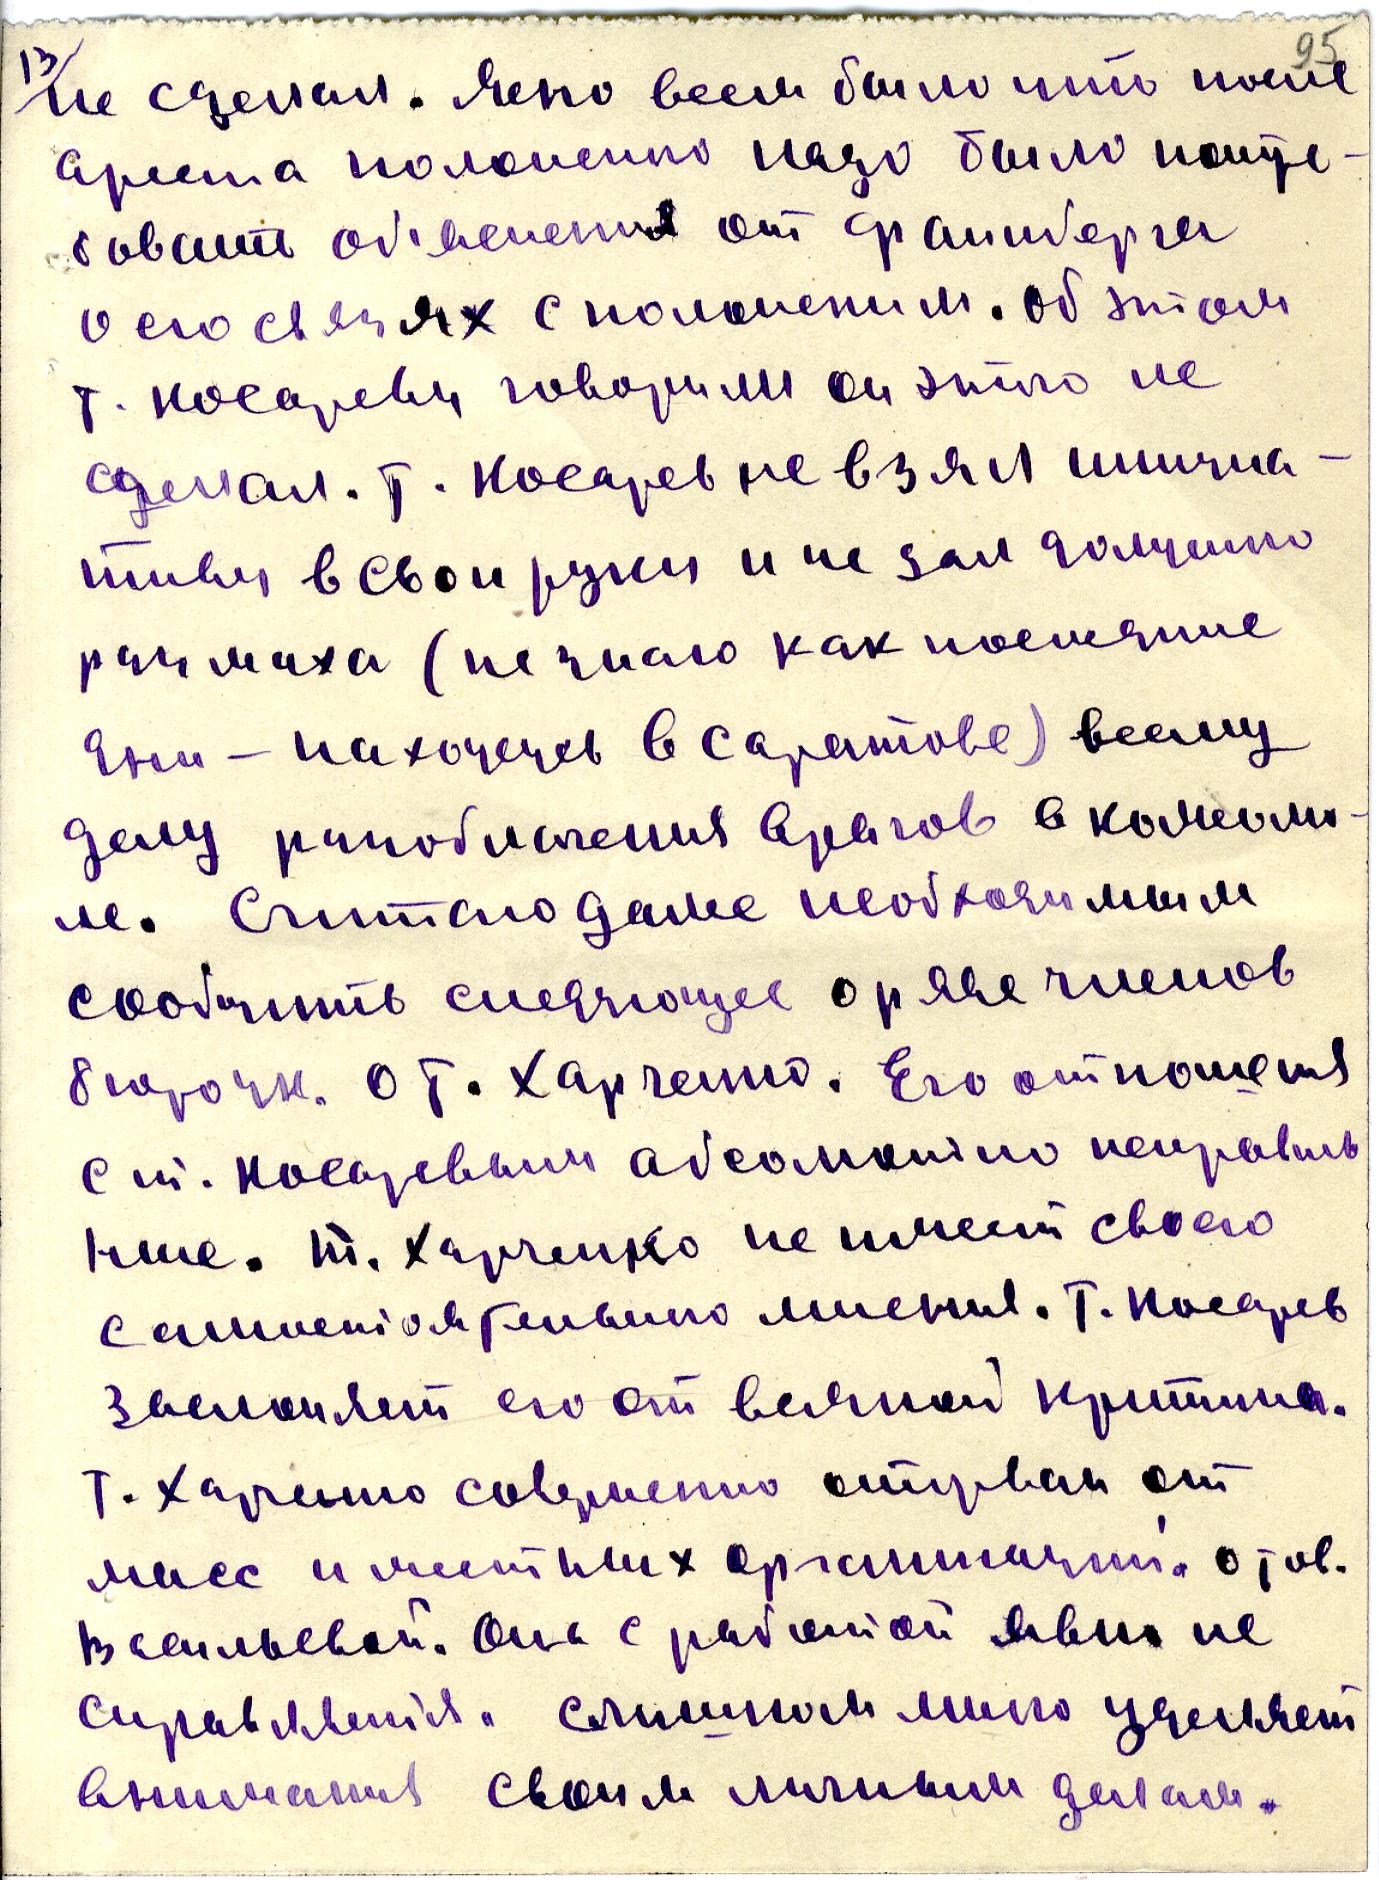 13/
95
не сделал. Ясно всем было что после
ареста полоненко надо было потре-
бовать об'яснения от файнберга
о его связях с полоненким. Об этом
т. Косареву говорили он этого не
сделал. Т. Косарев не взял инициа-
тиву в свои руки и не дал должного
размаха (не знаю как последние
дни — нахожусь в Саратове) всему
делу разоблачения врагов в комсомо-
ле. Считаю даже необходимым
сообщить следующее о ряде членов
бюро цк. О т. Харченко. Его отношения
с т. Косаревым абсолютно неправиль
ные. Т. Харченко не имеет своего
самостоятельного мнения. Т. Косарев
заслоняет его от всякой критики.
Т. Харченко совершенно оторван от
масс и местных организаций. О тов.
Васильевой. Она с работой явно не
справляется. Слишком много уделяет
внимания своим личным делам.